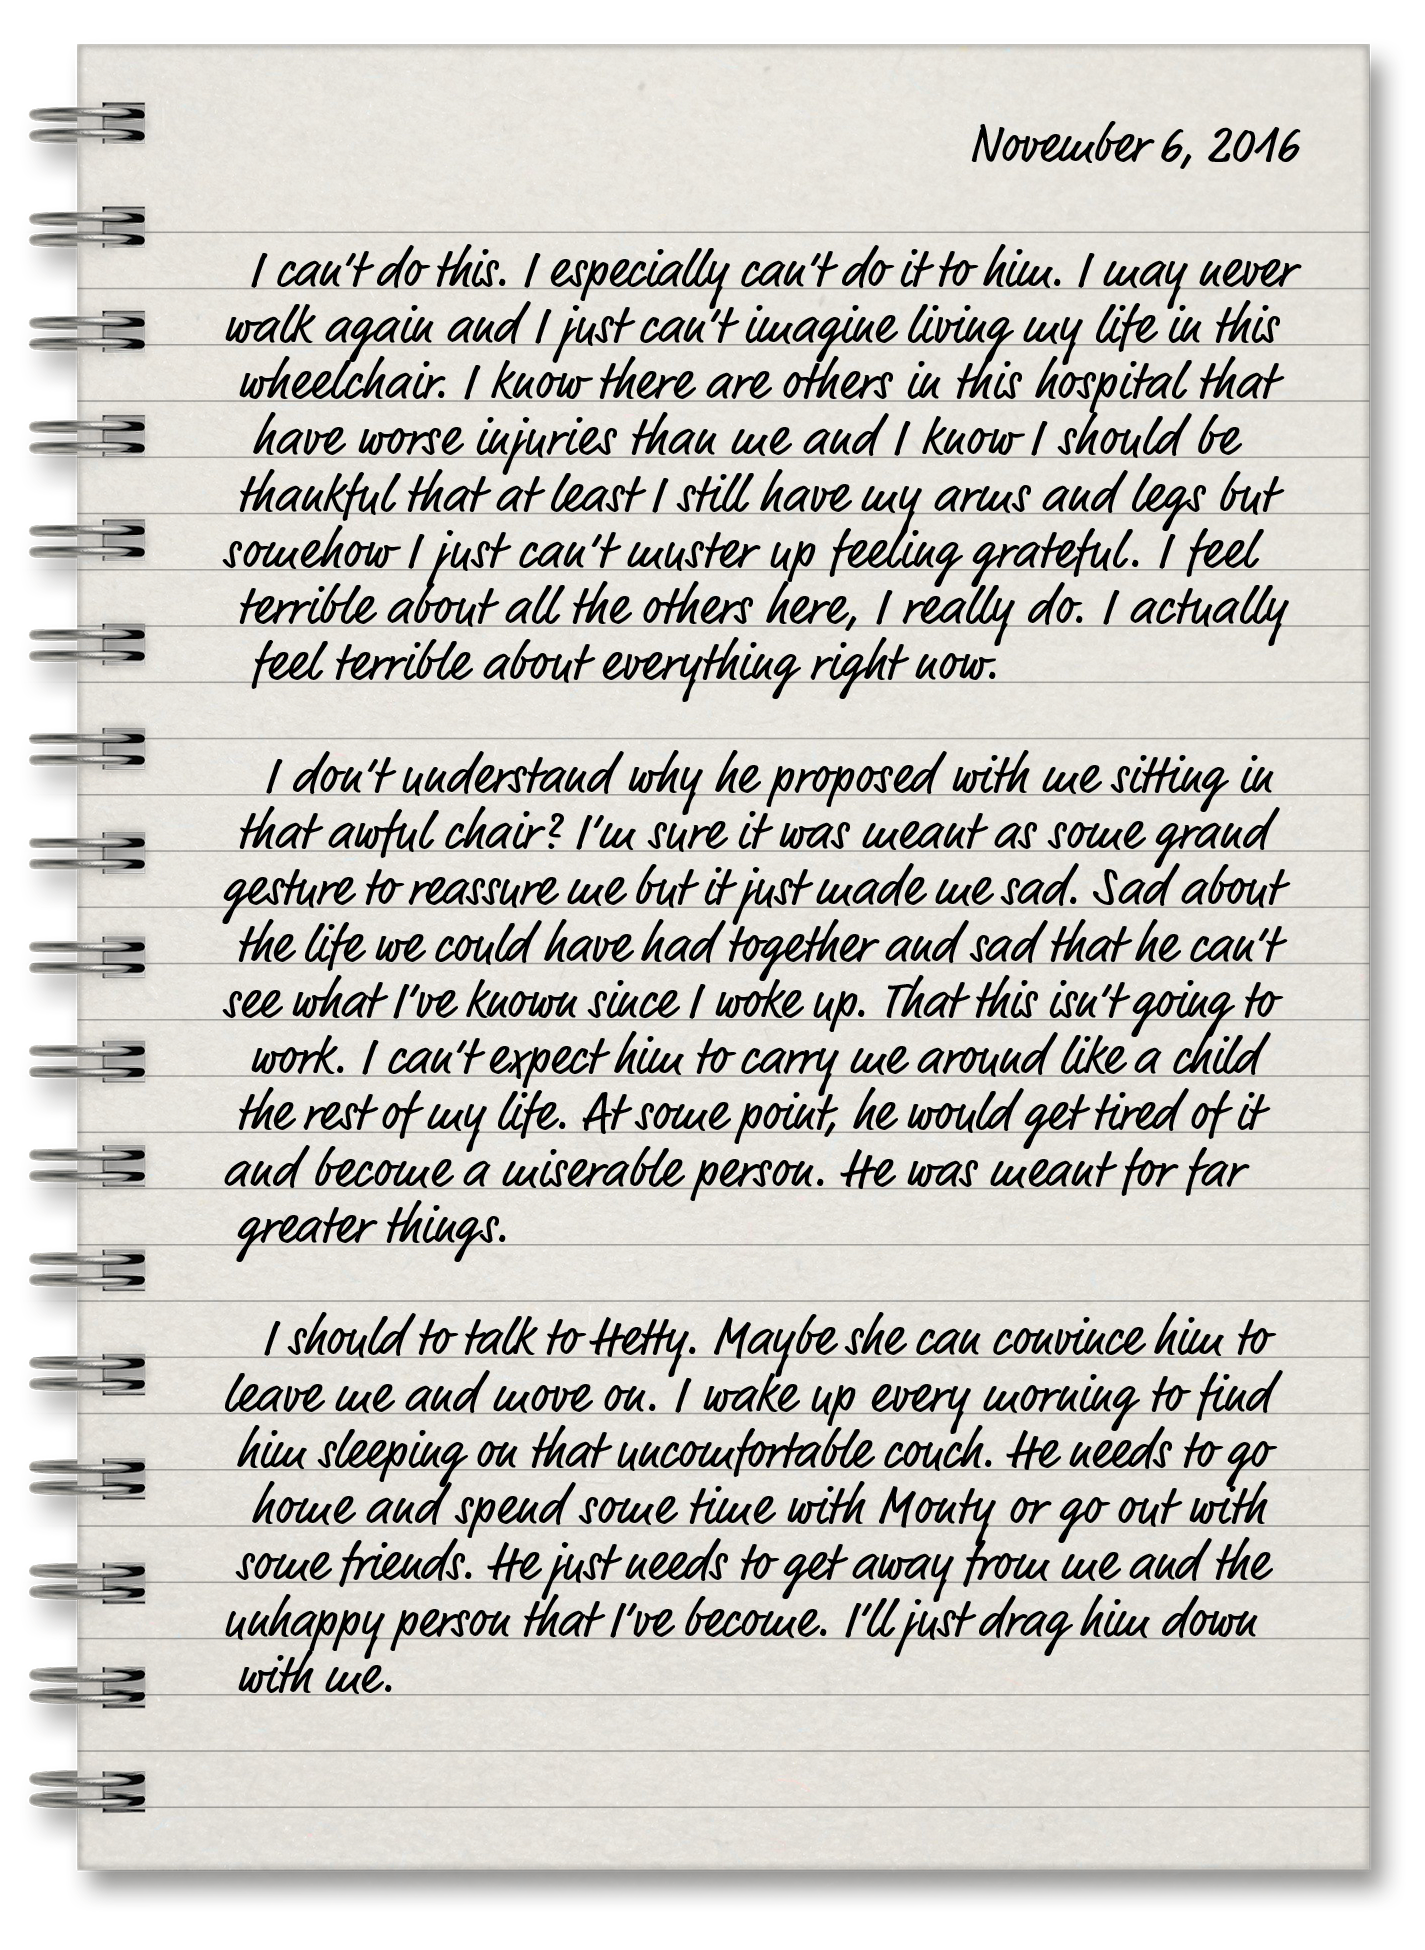 November 6, 2016
I can't do this. I especially can't do it to him. I may never
walk again and I just can't imagine living my life in this
wheelchair. I know there are others in this hospital that
have worse injuries than me and I know I should be
thankful that at least I still have my arms and legs but
somehow I just can't muster up feeling grateful. I feel
terrible about all the others here, I really do. I actually
feel terrible about everything right now.
I don't understand why he proposed with me sitting in
that awful chair? I'm sure it was meant as some grand
gesture to reassure me but it just made me sad. Sad about
the life we could have had together and sad that he can't
see what I've known since I woke up. That this isn't going to
work. I can't expect him to carry me around like a child
the rest of my life. At some point, he would get tired of it
and become a miserable person. He was meant for far
greater things.
I should to talk to Hetty. Maybe she can convince him to
leave me and move on. I wake up every morning to find
him sleeping on that uncomfortable couch. He needs to go
home and spend some time with Monty or go out with
some friends. He just needs to get away from me and the
unhappy person that I've become. I'll just drag him down
with me.